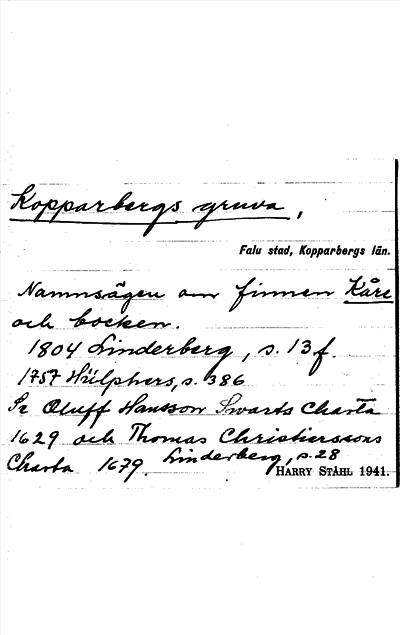 Kopparbergs gruva,
Falu stad, Kopparbergs län.
Namnsägen om finnen Kåre
och bocken.
1804 Linderberg, s. 13 f.
1757 Hülphers, s. 386
Oluff Hansson Swarts Charta
1629 och Thomas Christierssons
Charta 1679. Linderberg, s. 28
HARRY STÅHL 1941.